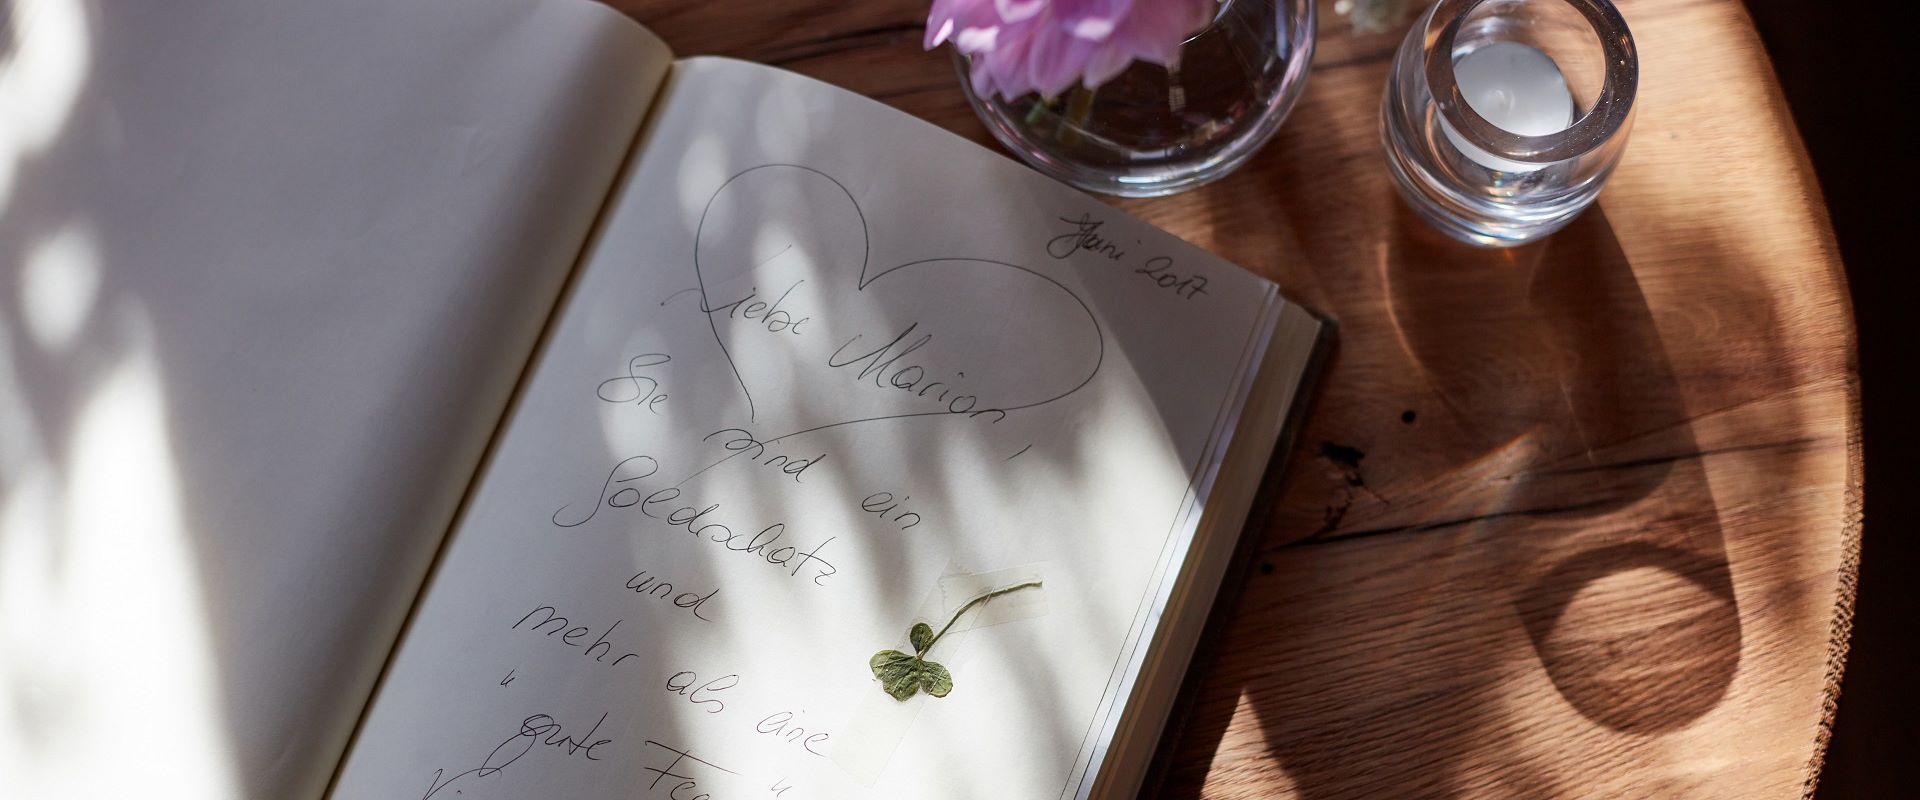 Juni 2017
Liebe Marion,
Sie
sind ein
Goldschatz
und
mehr als eine
"gute Fee"